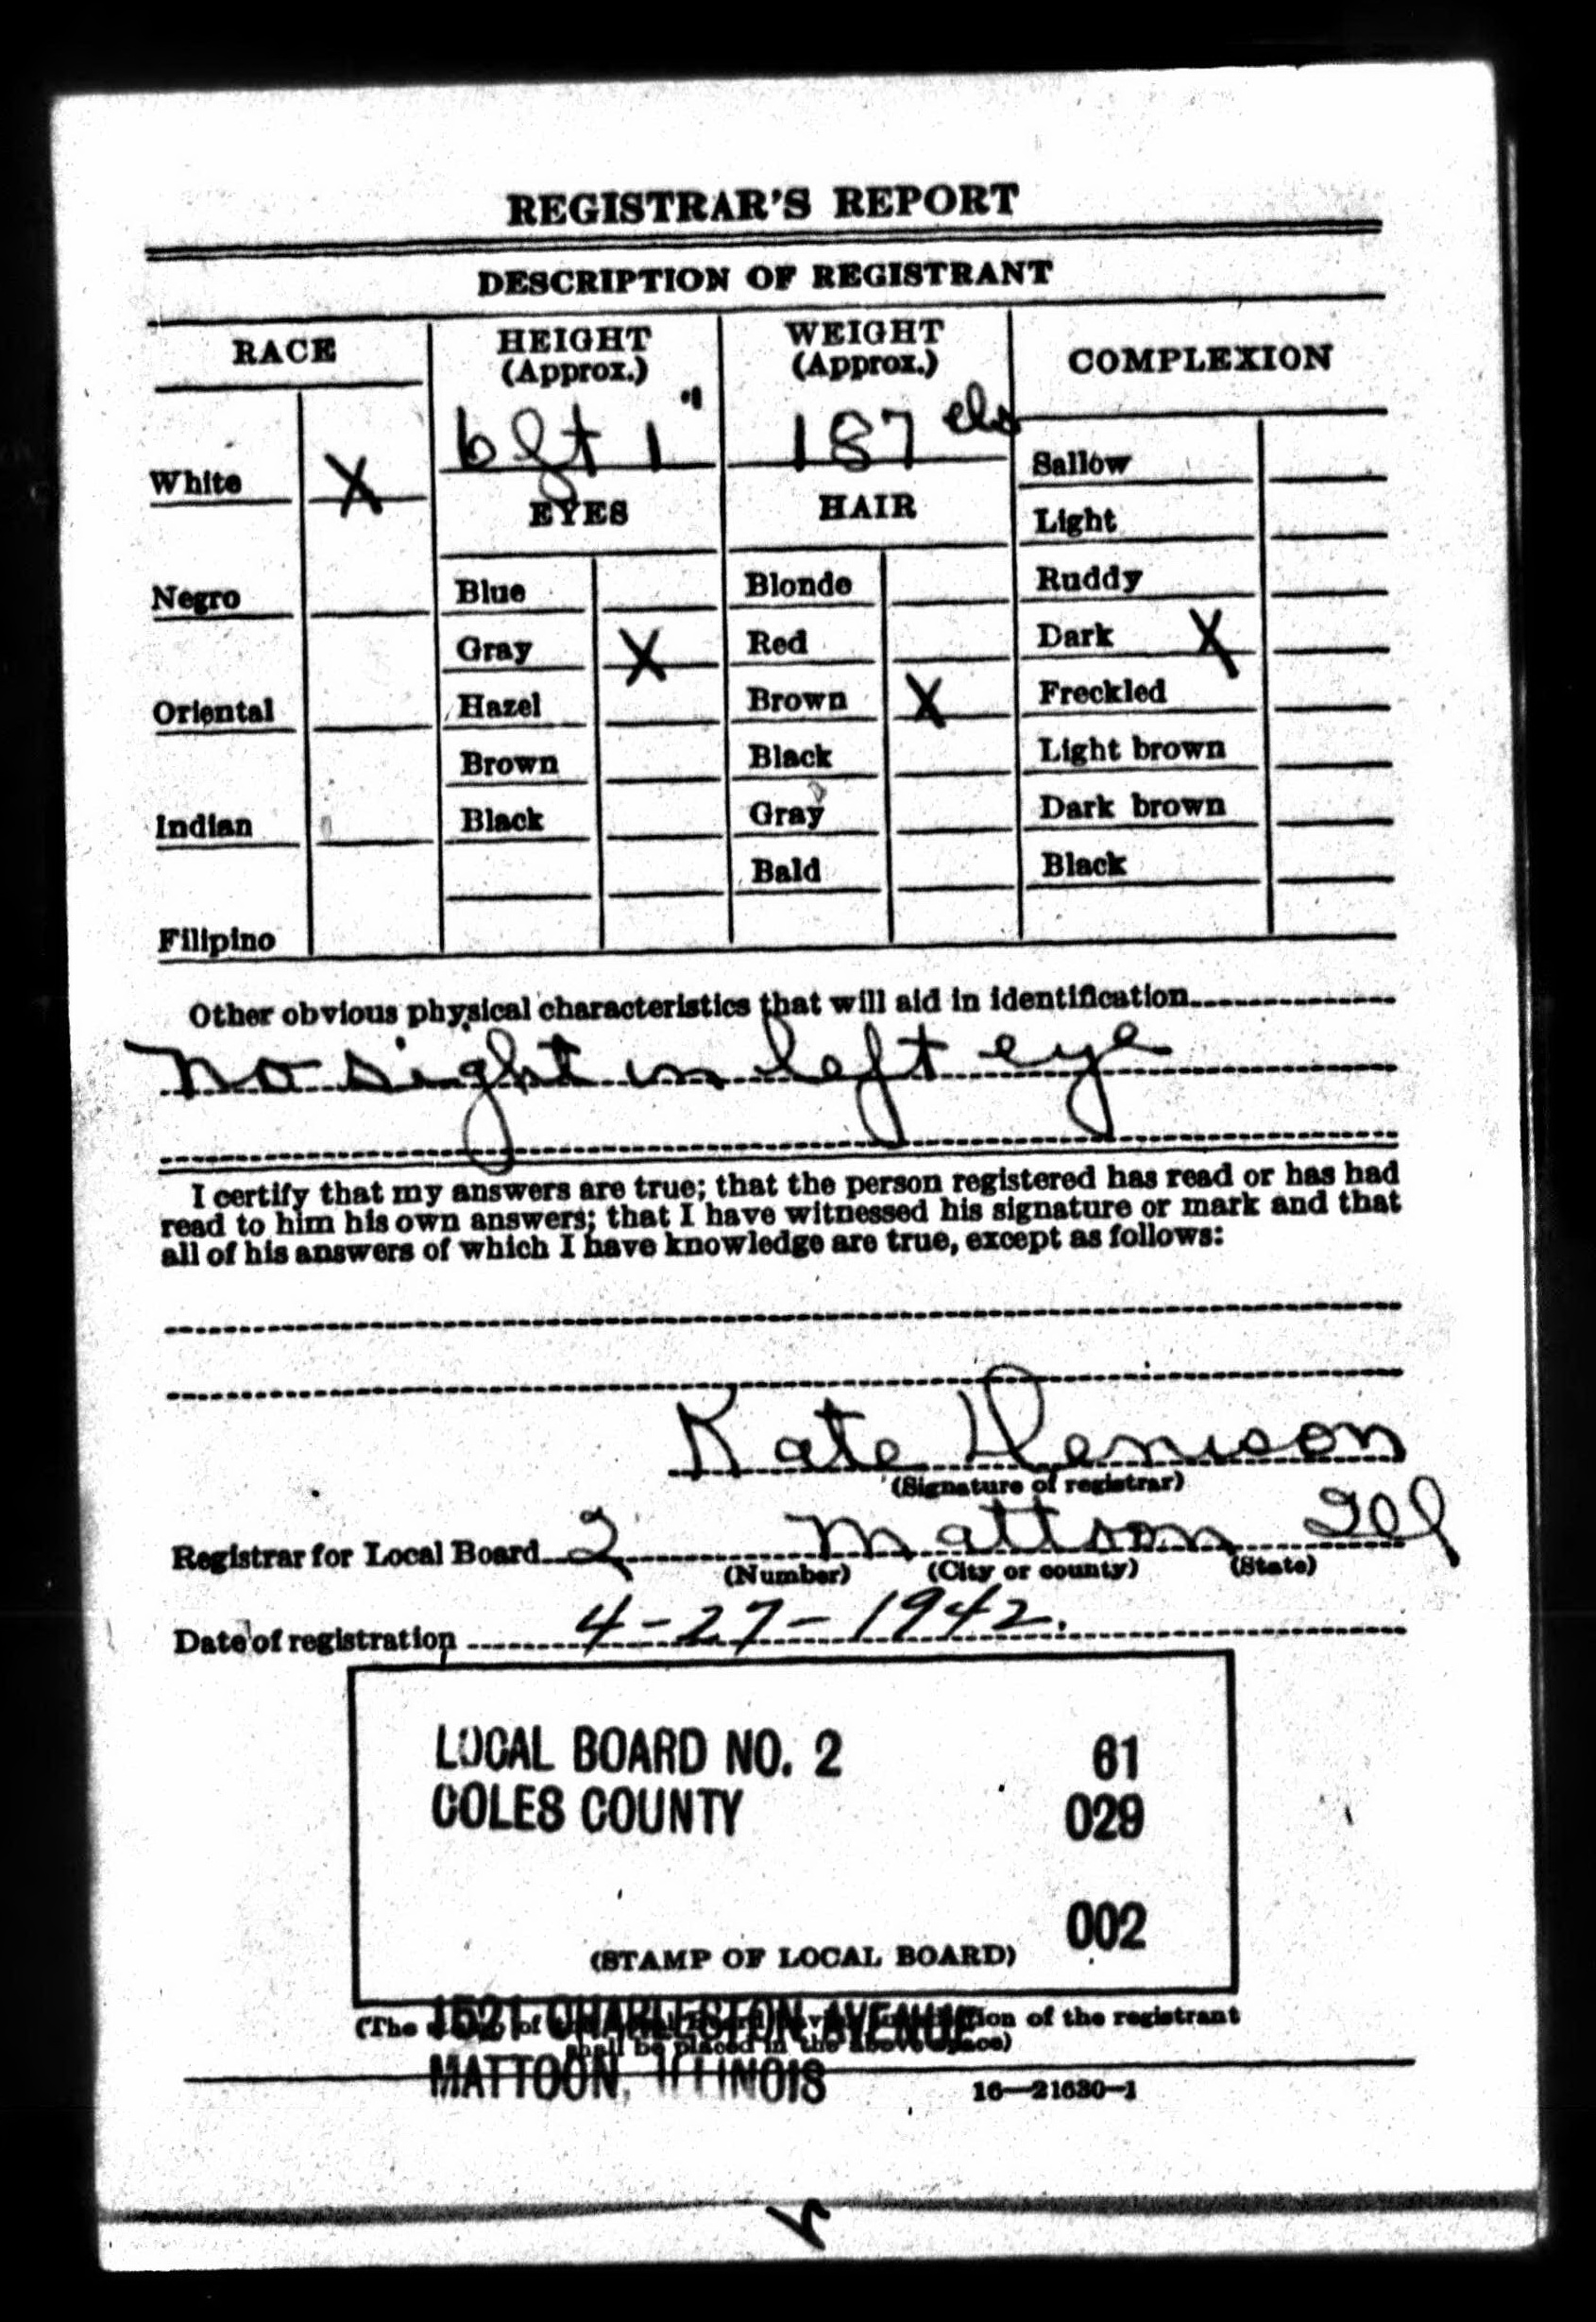 REGISTRAR'S REPORT
DESCRIPTION OF REGISTRANT
RACE
HEIGHT
(Approx.)
WEIGHT
(Approx.)
COMPLEXION
6 ft 1"
187
White X
EYES
HAIR
Sallow
Light
Negro
Blue
Blonde
Ruddy
Gray X
Red
Dark X
Oriental
Hazel
Brown X
Freckled
Brown
Black
Light brown
Indian
Black
Gray
Dark brown
Bald
Black
Filipino
Other obvious physical characteristics that will aid in identification
No sight in left eye
I certify that my answers are true; that the person registered has read or has had
read to him his own answers; that I have witnessed his signature or mark and that
all of his answers of which I have knowledge are true, except as follows:
Kate Denison
(Signature of registrar)
Registrar for Local Board 2 Mattoon Ill
(Number) (City or county) (State)
Date of registration 4-27-1942.
LOCAL BOARD NO. 2 61
COLES COUNTY 029
002
(STAMP OF LOCAL BOARD)
1521 CHARLESTON AVENUE
(The of the registrant
shall be placed in the above space)
MATTOON, ILLINOIS
16—21630-1